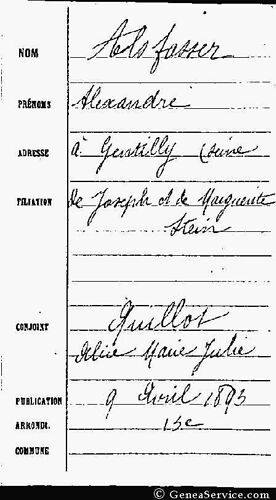 NOM Alsfasser
PRÉNOMS Alexandre
ADRESSE à Gentilly (Seine
FILIATION de Joseph et de Marguerite
Stein
CONJOINT Quillot
Alice Marie Julie
PUBLICATION 9 Avril 1893
ARRONDI. 13e
COMMUNE
© GeneaService.com